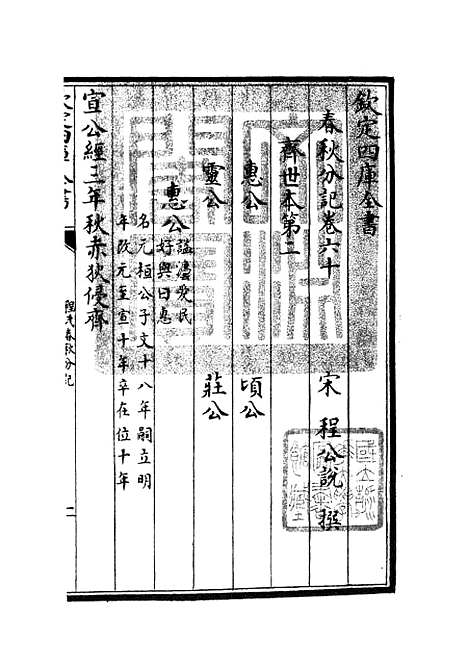 欽定四庫全書
春秋分記卷六十
宋 程公說 撰
齊世本第二
惠公 頃公
靈公 莊公
惠公 諡灋愛民好與曰惠
名元桓公子文十八年嗣立明
年改元至宣十年卒在位十年
宣公經三年秋赤狄侵齊
欽定四庫全書
程氏春秋分記
二